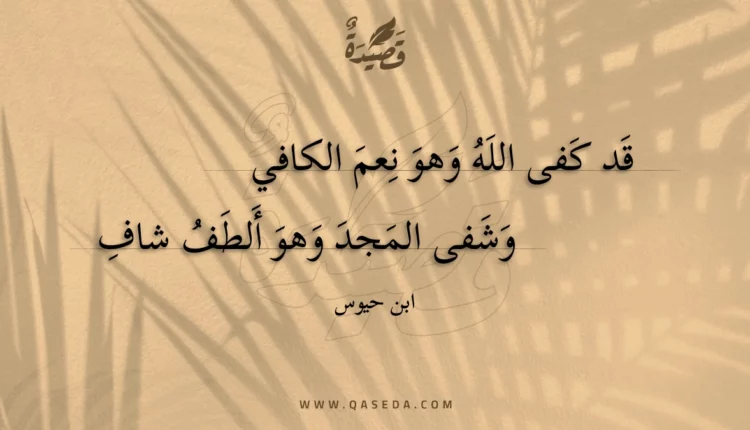 قَصِيدَةٌ
قَد كَفى اللَهُ وَهوَ نِعمَ الكافي
وَشَفى المَجدَ وَهوَ أَلطَفُ شافِ
ابن حيوس
WWW.QASEDA.COM